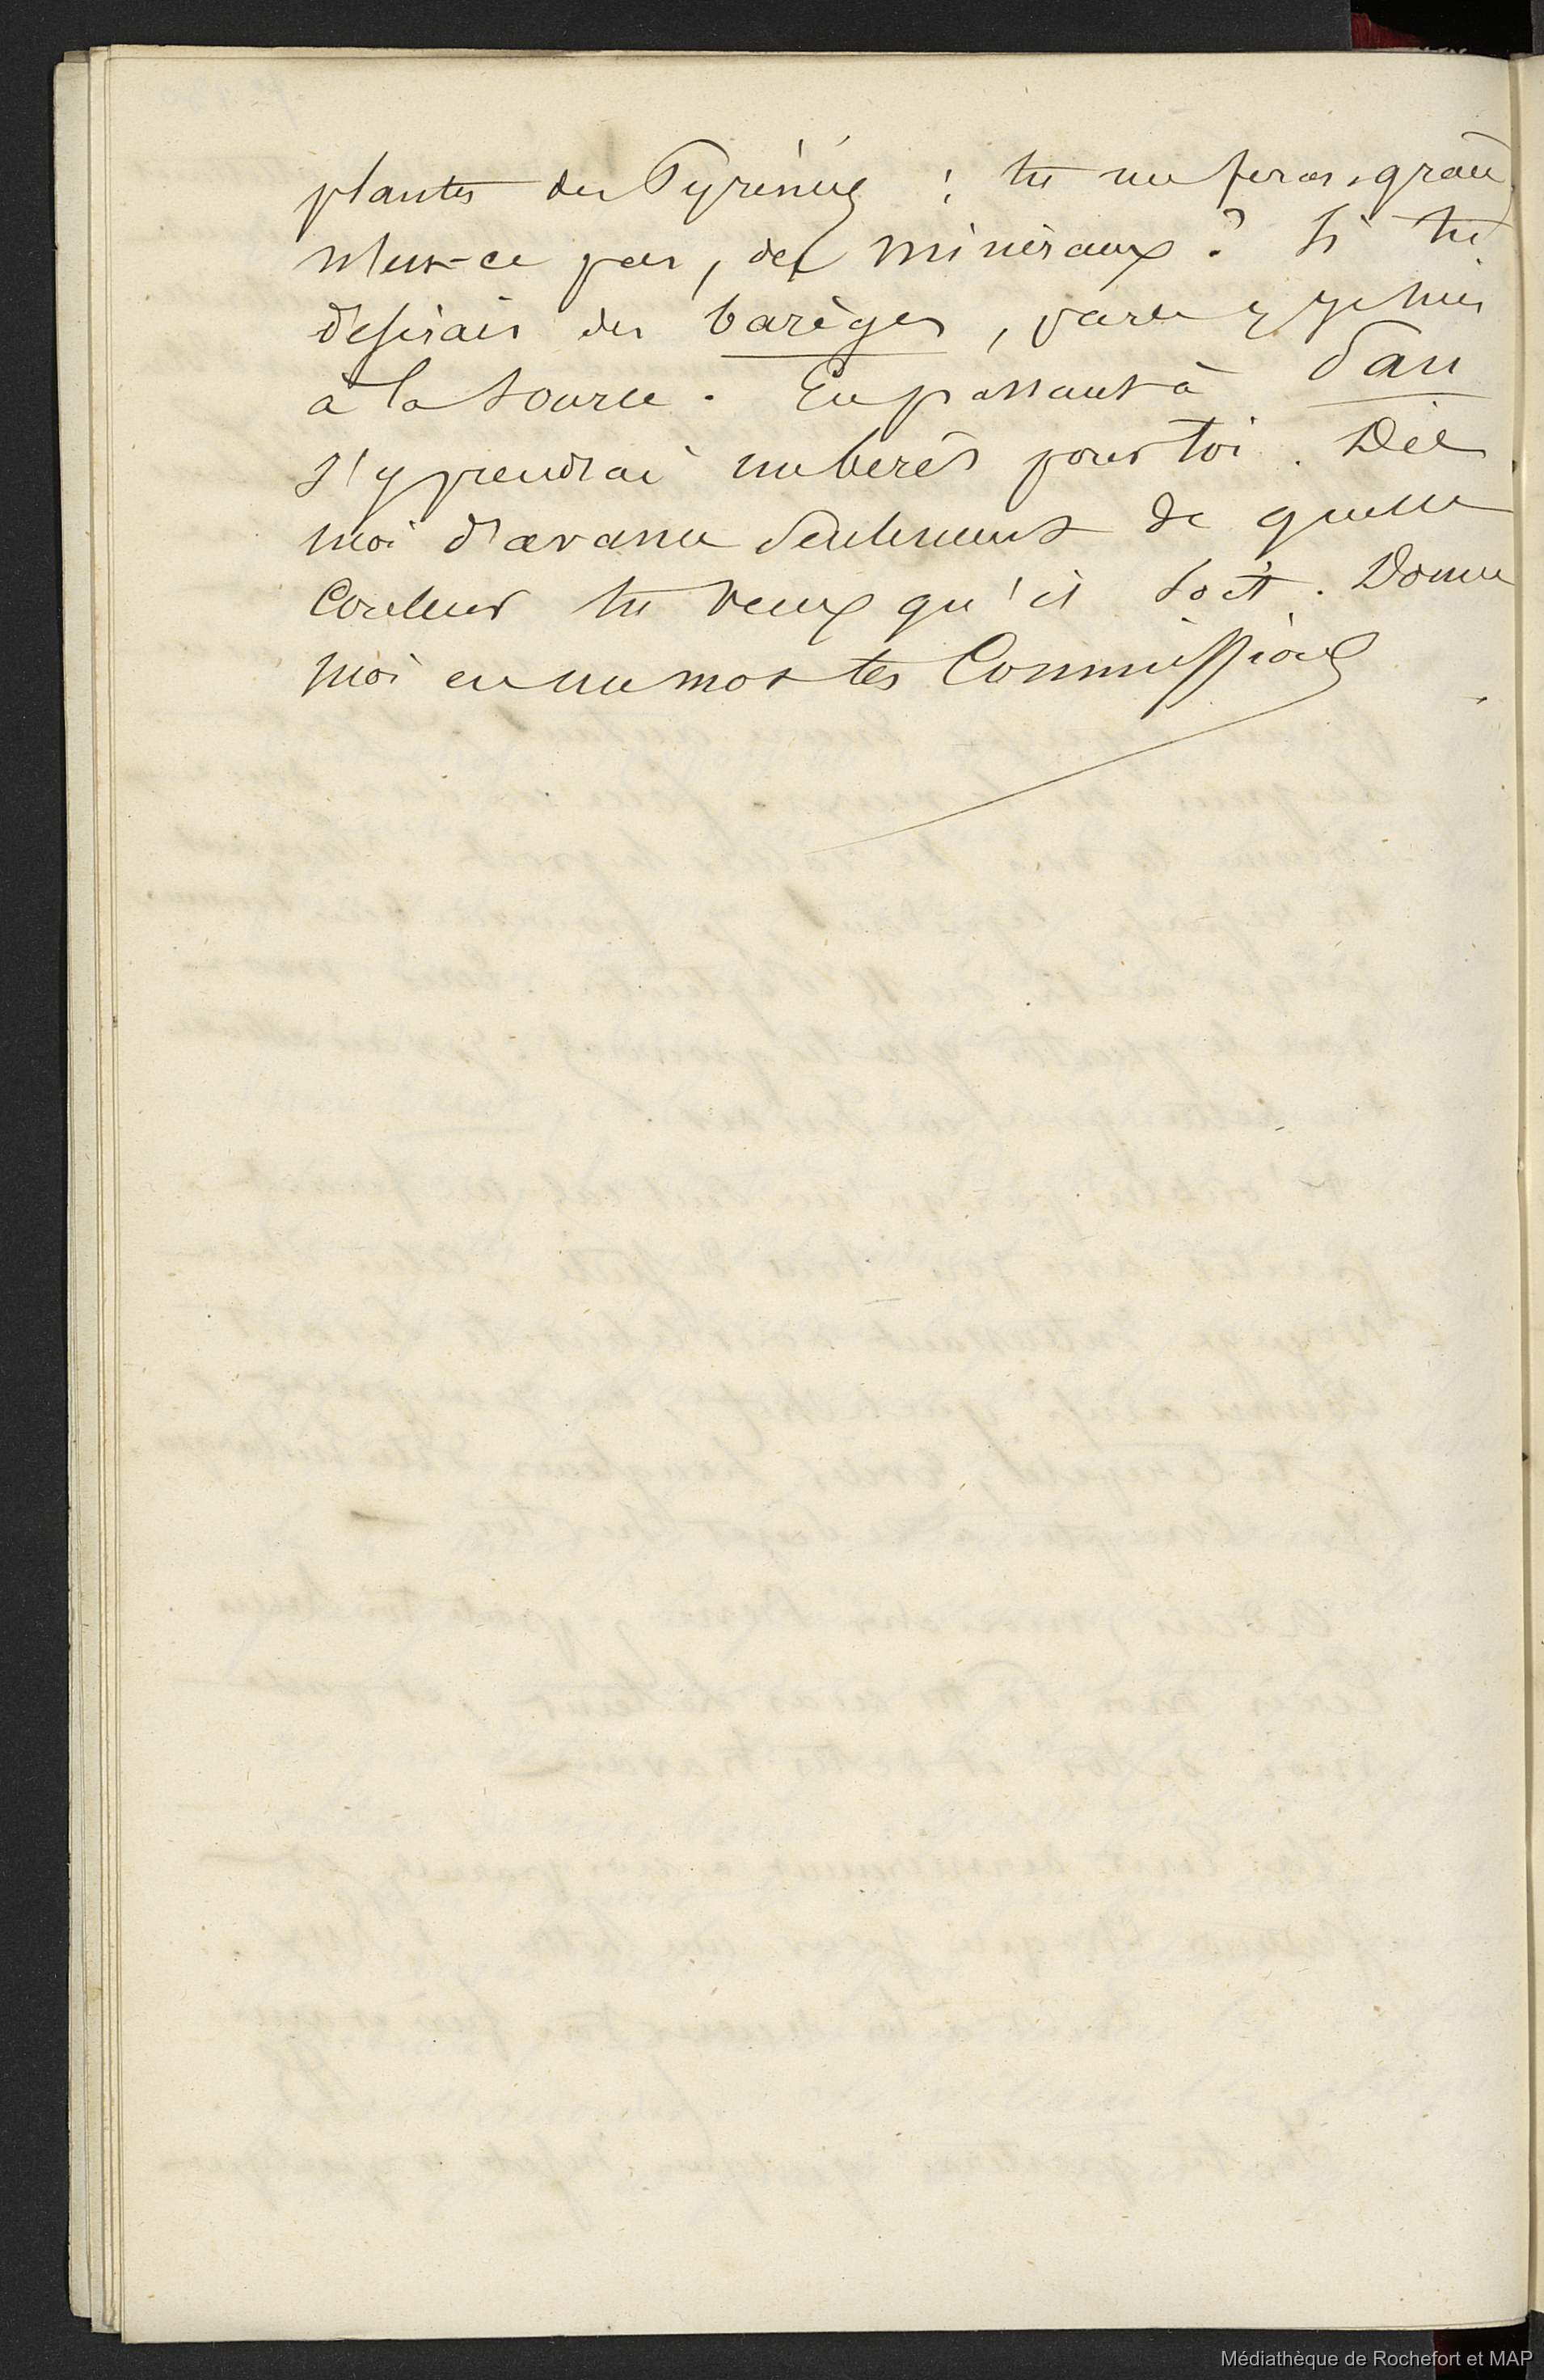 plantes des Pyrénées ; tu me feras grâce
n'est-ce pas, des minéraux ? Si tu
désirais des barèges, parle, je suis
à la source. En passant à Pau
j'y prendrai un beret pour toi. Dis
moi d'avance seulement de quelle
Couleur tu veux qu'il soit. Donne
moi en un mot tes Commissions
Médiathèque de Rochefort et MAP